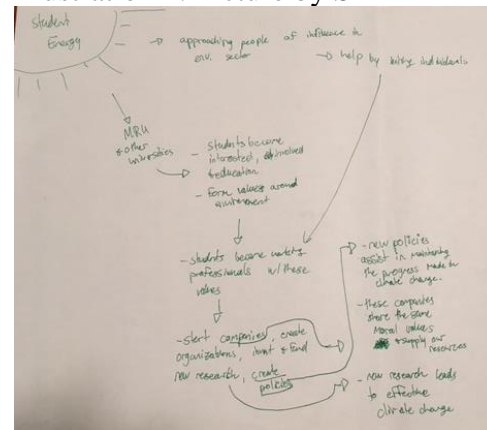 Student
Energy
→ approaching people of influence in
env. sector
→ help by hiring individuals
MRU
& other
universities
- Students become
interested, involved
& education
- form values around
environment
- students become working
professionals w/ these
values
- start companies, create
organizations, invest & fund
new research, create
policies
- new policies
assist in maintaining
the progress made in
climate change.
- these companies
share the same
moral values
& supply our
resources
- new research leads
to effective
climate change